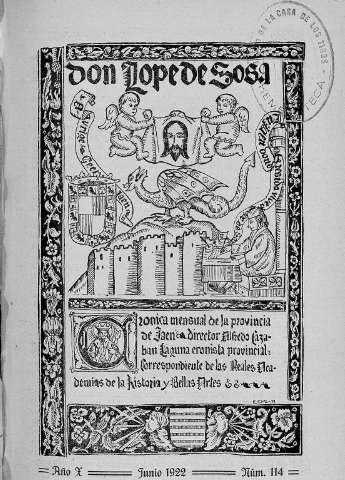 don Lope de Sosa
DE LA CASA DE LOS TIROS
Cronica mensual de la provincia
de Jaen director Alfredo Caza-
ban Laguna cronista provincial:
Correspondiente de las Reales Aca-
demias de la Historia y Bellas Artes
Año X — Junio 1922 — Núm. 114